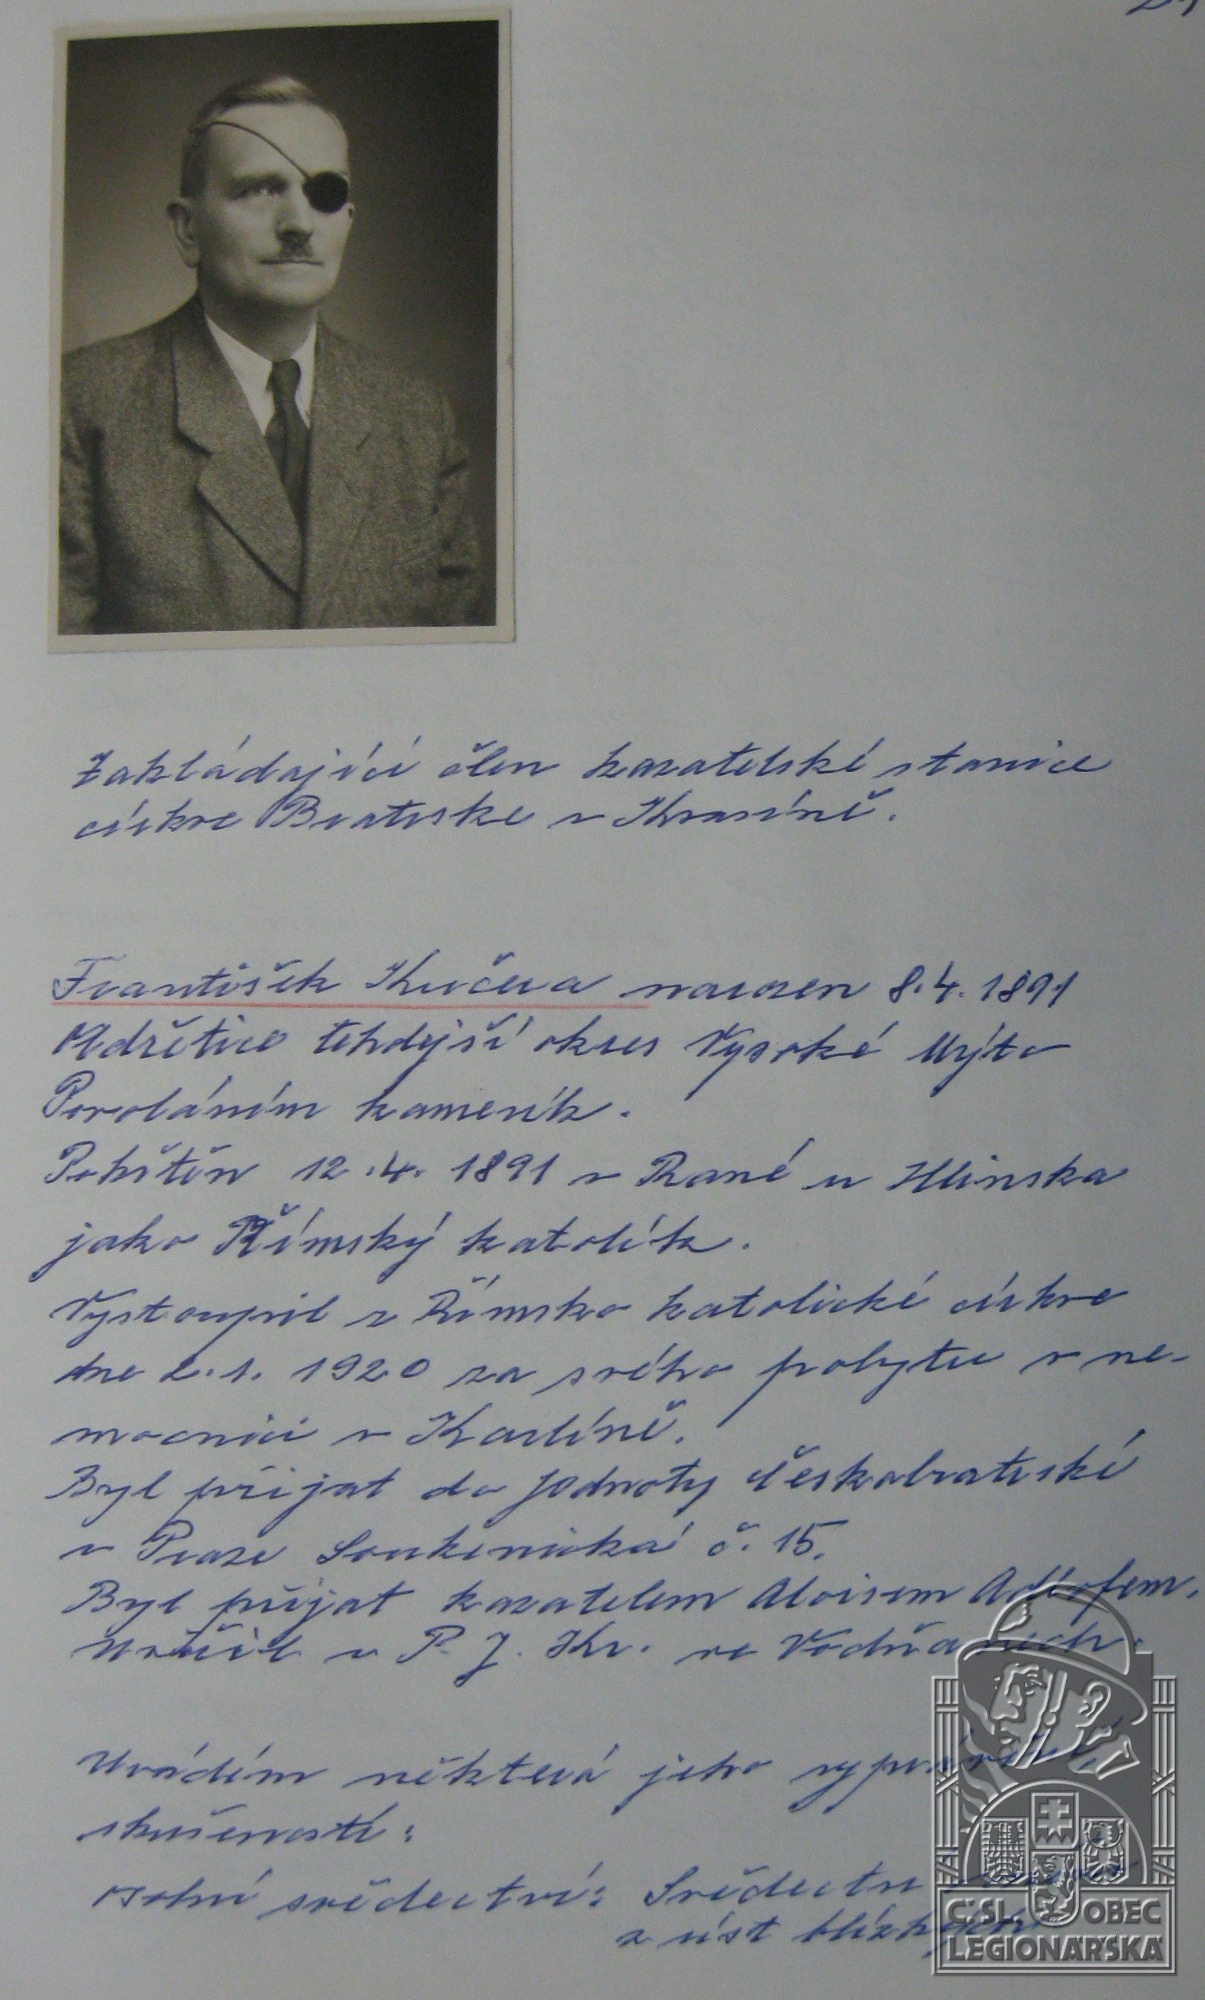 Zakládající člen kazatelské stanice
církve Bratrske v Krouně.
František Kučera narozen 8.4. 1891
Oldřetice tehdejší okres Vysoké Mýto
Povoláním kameník.
Pokřtěn 12.4. 1891 v Rané u Hlinska
jako Římský katolík.
Vystoupil z Římsko katolické církve
dne 2.1. 1920 za svého pobytu v ne-
mocnici v Karlíně.
Byl přijat do Jednoty českobratrské
v Praze Soukenická č. 15.
Byl přijat kazatelem Aloisem Adlofem.
Uvěřil u P. J. Kr. ve Vodňanech.
Uvádím některá jeho
skušenosti:
osobní svědectví: Svědectví
z úst blízkých
ČSL. OBEC
LEGIONÁŘSKÁ